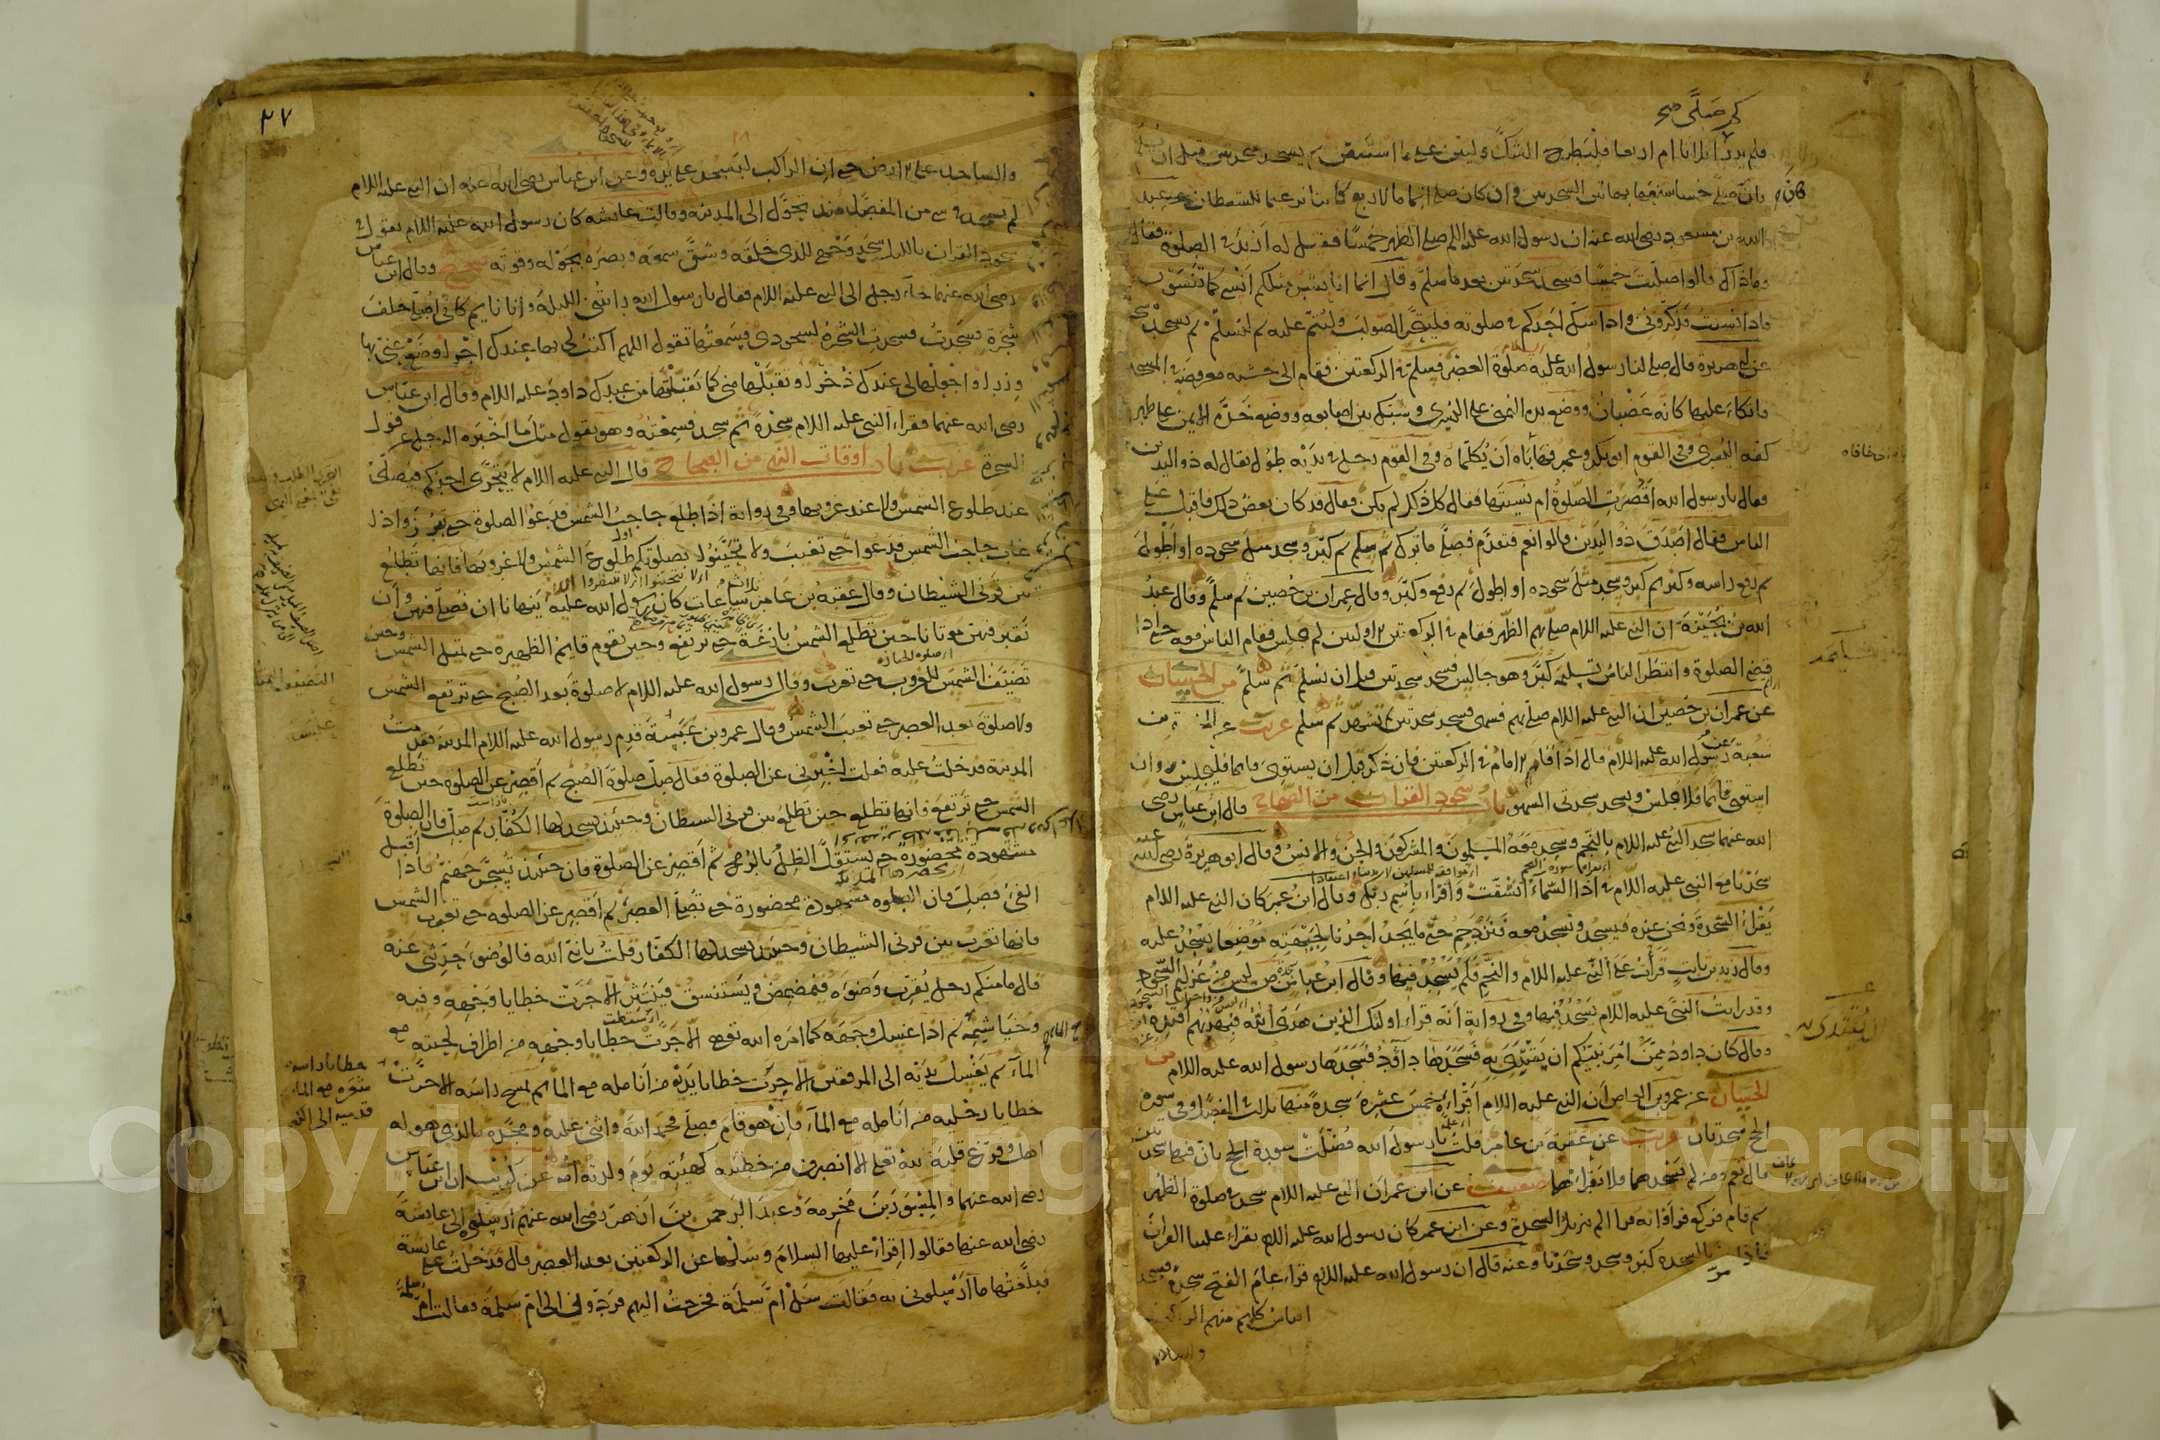 كم صلى صح
فلم يدر أثلاثا ام اربعا فليطرح الشك وليبن على ما استيقن ثم يسجد سجدتين قبل ان يسلم
فان صلى خمسا شفعها بهاتين السجدتين وان كان صلى اتماما لاربع كانتا ترغيما للشيطان عن عبد
الله بن مسعود رضى الله عنه ان رسول الله عليه السلم صلى الظهر خمسا فقيل له أزيد في الصلوة فقال
وما ذاك قالوا صليت خمسا فسجد سجدتين بعد ما سلم وقال انما انا بشر مثلكم أنسى كما تنسون
فاذا نسيت فذكروني واذا شك احدكم في صلوته فليتحر الصواب وليتم عليه ثم ليسلم ثم يسجد
عن ابى هريرة قال صلى لنا رسول الله عليه السلام صلوة العصر فسلم في الركعتين فقام الى خشبة معروضة في المسجد
فاتكاء عليها كانه غضبان ووضع يده اليمنى على اليسرى وشبك بين اصابعه ووضع خده الايمن على ظهر
كفه اليسرى وفى القوم ابو بكر وعمر فهاباه ان يكلماه وفى القوم رجل في يديه طول يقال له ذو اليدين
فقال يا رسول الله أقصرت الصلوة ام نسيتها فقال كل ذلك لم يكن فقال قد كان بعض ذلك فاقبل على
الناس فقال اصدق ذو اليدين قالوا نعم فتقدم فصلى ما ترك ثم سلم ثم كبر وسجد مثل سجوده او اطول
ثم رفع راسه وكبر ثم كبر وسجد مثل سجوده او اطول ثم رفع وكبر وقال عمران بن حصين ثم سلم وقال عبد
الله بن بحينة ان النبي عليه السلام صلى بهم الظهر فقام في الركعتين الاوليين لم يجلس فقام الناس معه حتى اذا
قضى الصلوة وانتظر الناس تسليمه كبر وهو جالس فسجد سجدتين قبل ان يسلم ثم سلم من الحسان
عن عمران بن حصين ان النبي عليه السلام صلى بهم فسهى فسجد سجدتين ثم تشهد ثم سلم غريب عن المغيرة بن
شعبة عن رسول الله عليه السلام قال اذا قام الامام في الركعتين فان ذكر قبل ان يستوى قائما فليجلس وان
استوى قائما فلا يجلس ويسجد سجدتى السهو باب سجود القرآن من الصحاح قال ابن عباس رضى
الله عنهما سجد النبي عليه السلام بالنجم وسجد معه المسلمون والمشركون والجن والانس وقال ابو هريرة رضى الله عنه
سجدنا مع النبى عليه السلام في اذا السماء انشقت واقراء باسم ربك وقال ابن عمر كان النبي عليه السلام
يقراء السجدة ونحن عنده فيسجد ونسجد معه فنزدحم حتى ما يجد احدنا لجبهته موضعا يسجد عليه
وقال زيد بن ثابت قرأت على النبي عليه السلام والنجم فلم يسجد فيها وقال ابن عباس سجدة ص ليس من عزايم السجود
وقد رايت النبى عليه السلام يسجد فيها وفى رواية انه قراء اولئك الذين هدى الله فبهديهم اقتده
وقال كان داود ممن أمر نبيكم ان يقتدى به فسجدها داود فسجدها رسول الله عليه السلام من
الحسان عن عمرو بن العاص ان النبي عليه السلام اقراه خمس عشرة سجدة منها ثلاث في المفصل وفى سورة
الحج سجدتان غريب عن عقبة بن عامر قلت يا رسول الله فضلت سورة الحج بان فيها سجدتين
قال نعم ومن لم يسجدهما فلا يقراهما ضعيف عن ابن عمر ان النبي عليه السلام سجد في صلوة الظهر
ثم قام فركع فراوا انه قرا الم تنزيل السجدة وعن ابن عمر كان رسول الله عليه السلام يقراء علينا القران
فاذا مر بالسجدة كبر وسجد وسجدنا وعنه قال ان رسول الله عليه السلام قراء عام الفتح سجدة فسجد
الناس كلهم منهم الراكب
والساجد
يقتدى
٢٧
والساجد على الارض حتى ان الراكب ليسجد على يده وعن ابن عباس رضى الله عنه ان النبي عليه السلام
لم يسجد في شى من المفصل منذ تحول الى المدينة وقالت عائشة كان رسول الله عليه السلام يقول في
سجود القران بالليل سجد وجهى للذى خلقه وشق سمعه وبصره بحوله وقوته صحيح وقال ابن عباس
رضى الله عنهما جاء رجل الى النبي عليه السلام فقال يا رسول الله رأيتنى الليلة وانا نايم كانى اصلى خلف
شجرة فسجدت فسجدت الشجرة لسجودى فسمعتها تقول اللهم اكتب لى بها عندك اجرا وضع عنى بها
وزرا واجعلها لى عندك ذخرا وتقبلها منى كما تقبلتها من عبدك داود عليه السلام وقال ابن عباس
رضى الله عنهما فقراء النبى عليه السلام سجدة ثم سجد فسمعته وهو يقول مثل ما اخبره الرجل عن قول
الشجرة غريب باب اوقات النهى من الصحاح قال النبي عليه السلام لا يتحرى احدكم فيصلى
عند طلوع الشمس ولا عند غروبها وفى رواية اذا طلع حاجب الشمس فدعوا الصلوة حتى تبرز واذا
غاب حاجب الشمس فدعوا حتى تغيب ولا تحينوا بصلوتكم طلوع الشمس ولا غروبها فانها تطلع
بين قرنى الشيطان وقال عقبة بن عامر ثلاث ساعات كان رسول الله عليه السلام ينهانا ان نصلى فيهن وان
نقبر فيهن موتانا حين تطلع الشمس بازغة حتى ترتفع وحين يقوم قايم الظهيرة حتى تميل الشمس وحين
تضيف الشمس للغروب حتى تغرب وقال رسول الله عليه السلام لا صلوة بعد الصبح حتى ترتفع الشمس
ولا صلوة بعد العصر حتى تغيب الشمس وقال عمرو بن عبسة قدم رسول الله عليه السلام المدينة فقدمت
المدينة فدخلت عليه فقلت اخبرنى عن الصلوة فقال صل صلوة الصبح ثم أقصر عن الصلوة حين تطلع
الشمس حتى ترتفع فانها تطلع حين تطلع بين قرنى الشيطان وحينئذ يسجد لها الكفار ثم صل فان الصلوة
مشهودة محضورة حتى يستقل الظل بالرمح ثم أقصر عن الصلوة فان حينئذ تسجر جهنم فاذا اقبل
الفئ فصل فان الصلوة مشهودة محضورة حتى تصلى العصر ثم أقصر عن الصلوة حتى تغرب الشمس
فانها تغرب بين قرنى الشيطان وحينئذ يسجد لها الكفار قلت يا نبى الله فالوضوء حدثنى عنه
قال ما منكم رجل يقرب وضوءه فيمضمض ويستنشق فينتثر الا خرت خطايا وجهه وفيه
وخياشيمه ثم اذا غسل وجهه كما امره الله تعالى الا خرت خطايا وجهه من اطراف لحيته مع
الماء ثم يغسل يديه الى المرفقين الا خرت خطايا يديه من انامله مع الماء ثم يمسح راسه الا خرت
خطايا رجليه من انامله مع الماء فان هو قام فصلى فحمد الله واثنى عليه ومجده بالذى هو له
اهل وفرغ قلبه لله تعالى الا انصرف من خطيئته كهيئته يوم ولدته امه عن كريب ان ابن عباس
رضى الله عنهما والمسور بن مخرمة وعبد الرحمن بن ازهر رضى الله عنهم ارسلوه الى عائشة
رضى الله عنها فقالوا اقراء عليها السلام وسلها عن الركعتين بعد العصر قال فدخلت على عائشة
فبلغتها ما ارسلونى به فقالت سل ام سلمة فخرجت اليهم فردونى الى ام سلمة فقالت ام سلمة
خطايا راسه من
شعره مع الماء
قدميه الى
Copyright © King Saud University